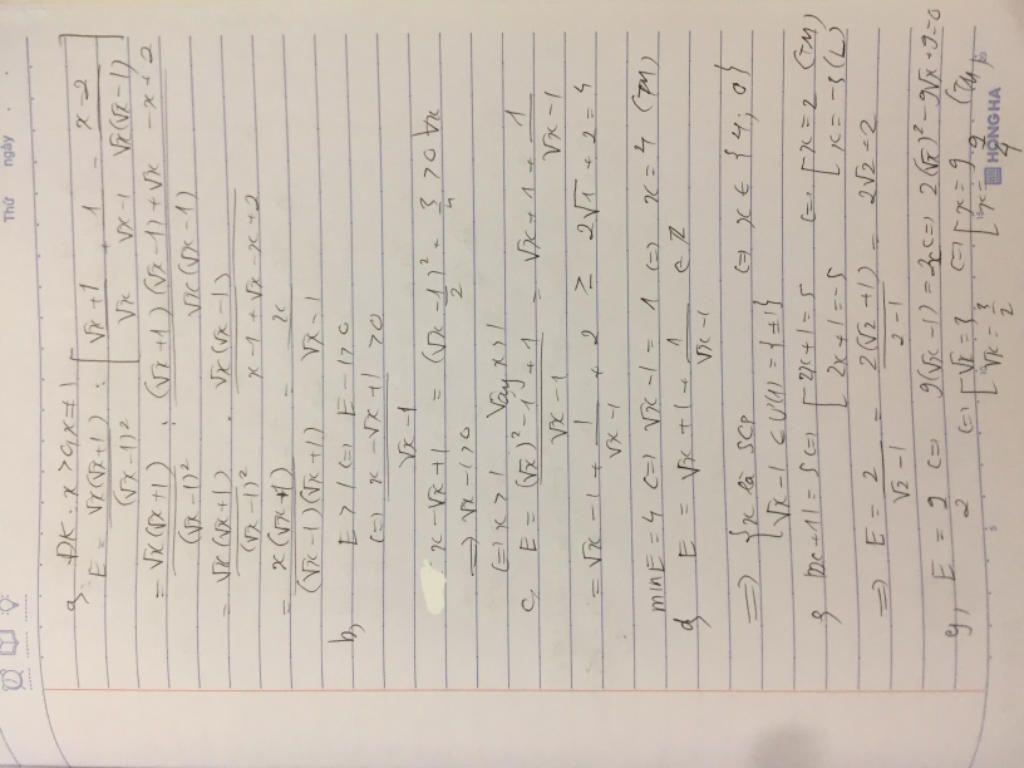 Thứ ngày
a, ĐK: x > 0, x ≠ 1
E = √x(√x+1)/(√x-1)² : [ (√x+1)/√x + 1/(√x-1) - (x-2)/(√x(√x-1)) ]
= √x(√x+1)/(√x-1)² : ((√x+1)(√x-1)+√x-x+2)/(√x(√x-1))
= √x(√x+1)/(√x-1)² . √x(√x-1)/(x-1+√x-x+2)
= x(√x+1)/((√x-1)(√x+1)) = x/(√x-1)
b, E > 1 (=) E-1 > 0
(=) (x-√x+1)/(√x-1) > 0
x-√x+1 = (√x-1/2)² + 3/4 > 0 ∀x
=) √x-1 > 0
(=) x > 1 Vậy x > 1
c, E = ((√x)²-1+1)/(√x-1) = √x+1+1/(√x-1)
= √x-1+1/(√x-1)+2 ≥ 2√1+2 = 4
min E = 4 (=) √x-1 = 1 (=) x = 4 (TM)
d, E = √x+1+1/(√x-1) ∈ Z
=) { x là SCP
{ √x-1 ∈ Ư(1) = {±1} (=) x ∈ {4; 0}
|2x+1| = 5 (=) [ 2x+1=5 (=) [ x=2 (TM)
[ 2x+1=-5 [ x=-3 (L)
=) E = 2/(√2-1) = 2(√2+1)/(2-1) = 2√2+2
g, E = 9/2 (=) 9(√x-1) = 2x (=) 2(√x)²-9√x+9=0
(=) [ √x=3 (=) [ x=9
[ √x=3/2 [ x=9/4 (TM)
HONG HA